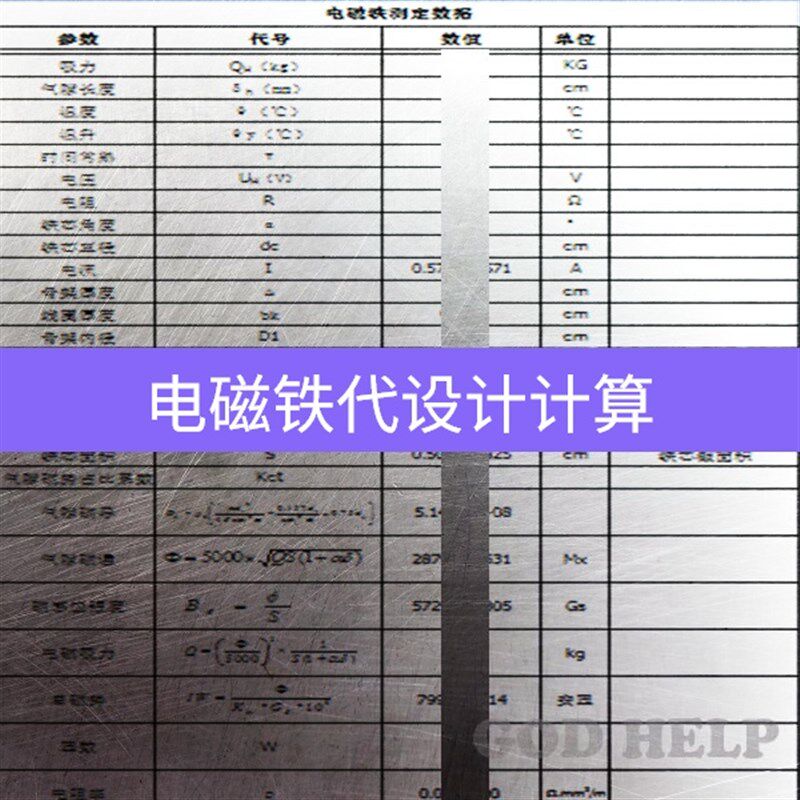 电磁铁测定数据
参数 代号 数值 单位
吸力 Qu (kg) KG
气隙长度 δh (mm) cm
温度 θ (℃) ℃
温升 θy (℃) ℃
时间常熟 τ
电压 Uu (V) V
电阻 R Ω
铁芯角度 α °
铁芯直径 dc cm
电流 I 0.57 671 A
骨架厚度 Δ cm
线圈厚度 bk cm
骨架内径 D1 cm
电磁铁代设计计算
铁芯面积 S 0.50 625 cm 铁芯截面积
Kct
气隙磁导 5.14 -08
气隙磁通 Φ=5000×√QS(1+αδ) 287 631 Mx
磁感应强度 B = φ/S 572 905 Gs
电磁吸力 kg
电磁势 799 14 安匝
匝数 W
电阻率 ρ 0.0 0 Ω.mm²/m
GOD HELP